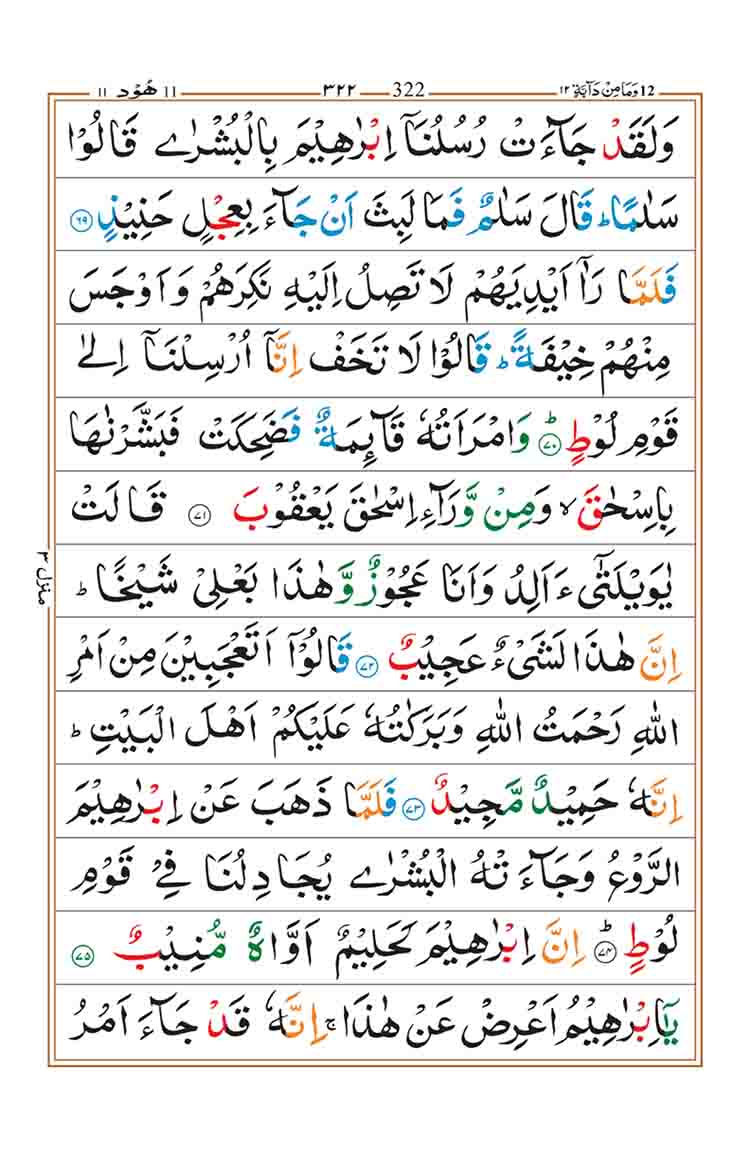 12 وَمَا مِنْ دَآبَّةٍ ۱۲ 322 ۳۲۲ 11 هُوْد ۱۱
وَلَقَدْ جَآءَتْ رُسُلُنَاۤ اِبْرٰهِیْمَ بِالْبُشْرٰی قَالُوْا
سَلٰمًا ؕ قَالَ سَلٰمٌ فَمَا لَبِثَ اَنْ جَآءَ بِعِجْلٍ حَنِیْذٍ ﴿۶۹﴾
فَلَمَّا رَاٰۤ اَیْدِیَهُمْ لَا تَصِلُ اِلَیْهِ نَكِرَهُمْ وَ اَوْجَسَ
مِنْهُمْ خِیْفَةً ؕ قَالُوْا لَا تَخَفْ اِنَّاۤ اُرْسِلْنَاۤ اِلٰی
قَوْمِ لُوْطٍ ﴿ؕ۷۰﴾ وَامْرَاَتُهٗ قَآئِمَةٌ فَضَحِكَتْ فَبَشَّرْنٰهَا
بِاِسْحٰقَ ۙ وَمِنْ وَّرَآءِ اِسْحٰقَ یَعْقُوْبَ ﴿۷۱﴾ قَالَتْ
یٰوَیْلَتٰۤی ءَاَلِدُ وَاَنَا عَجُوْزٌ وَّهٰذَا بَعْلِیْ شَیْخًا ؕ
اِنَّ هٰذَا لَشَیْءٌ عَجِیْبٌ ﴿۷۲﴾ قَالُوْۤا اَتَعْجَبِیْنَ مِنْ اَمْرِ
اللّٰهِ رَحْمَتُ اللّٰهِ وَبَرَكٰتُهٗ عَلَیْكُمْ اَهْلَ الْبَیْتِ ؕ
اِنَّهٗ حَمِیْدٌ مَّجِیْدٌ ﴿۷۳﴾ فَلَمَّا ذَهَبَ عَنْ اِبْرٰهِیْمَ
الرَّوْعُ وَجَآءَتْهُ الْبُشْرٰی یُجَادِلُنَا فِیْ قَوْمِ
لُوْطٍ ﴿ؕ۷۴﴾ اِنَّ اِبْرٰهِیْمَ لَحَلِیْمٌ اَوَّاهٌ مُّنِیْبٌ ﴿۷۵﴾
یٰۤاِبْرٰهِیْمُ اَعْرِضْ عَنْ هٰذَا ۚ اِنَّهٗ قَدْ جَآءَ اَمْرُ
منزل ۳